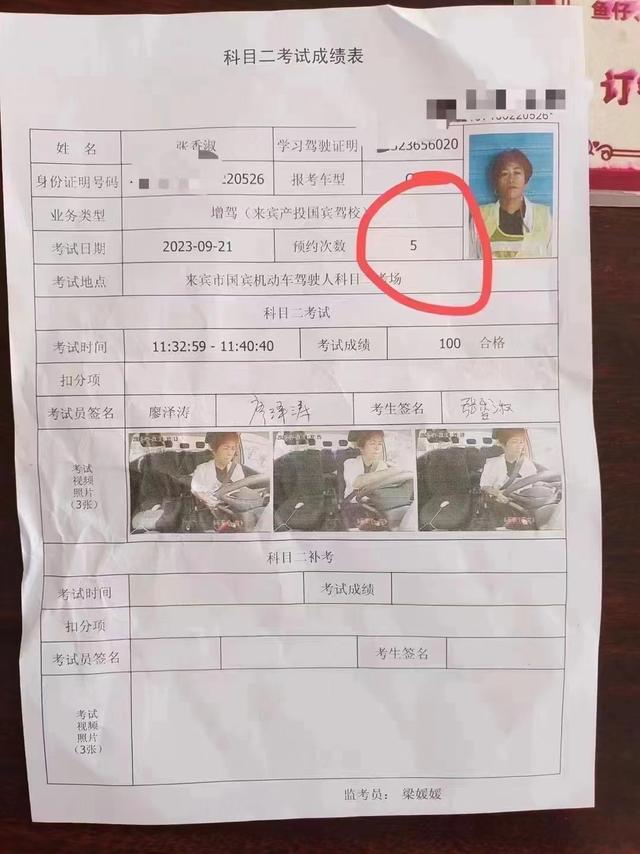 鱼仔、
订
科目二考试成绩表
姓 名 张香淑 学习驾驶证明 523656020
身份证明号码 220526 报考车型 C
业务类型 增驾（来宾产投国宾驾校）
考试日期 2023-09-21 预约次数 5
考试地点 来宾市国宾机动车驾驶人科目二考场
科目二考试
考试时间 11:32:59 - 11:40:40 考试成绩 100 合格
扣分项
考试员签名 廖泽涛 廖泽涛 考生签名 张香淑
考试
视频
照片
(3张)
科目二补考
考试时间 考试成绩
扣分项
考试员签名 考生签名
考试
视频
照片
(3张)
监考员： 梁媛媛